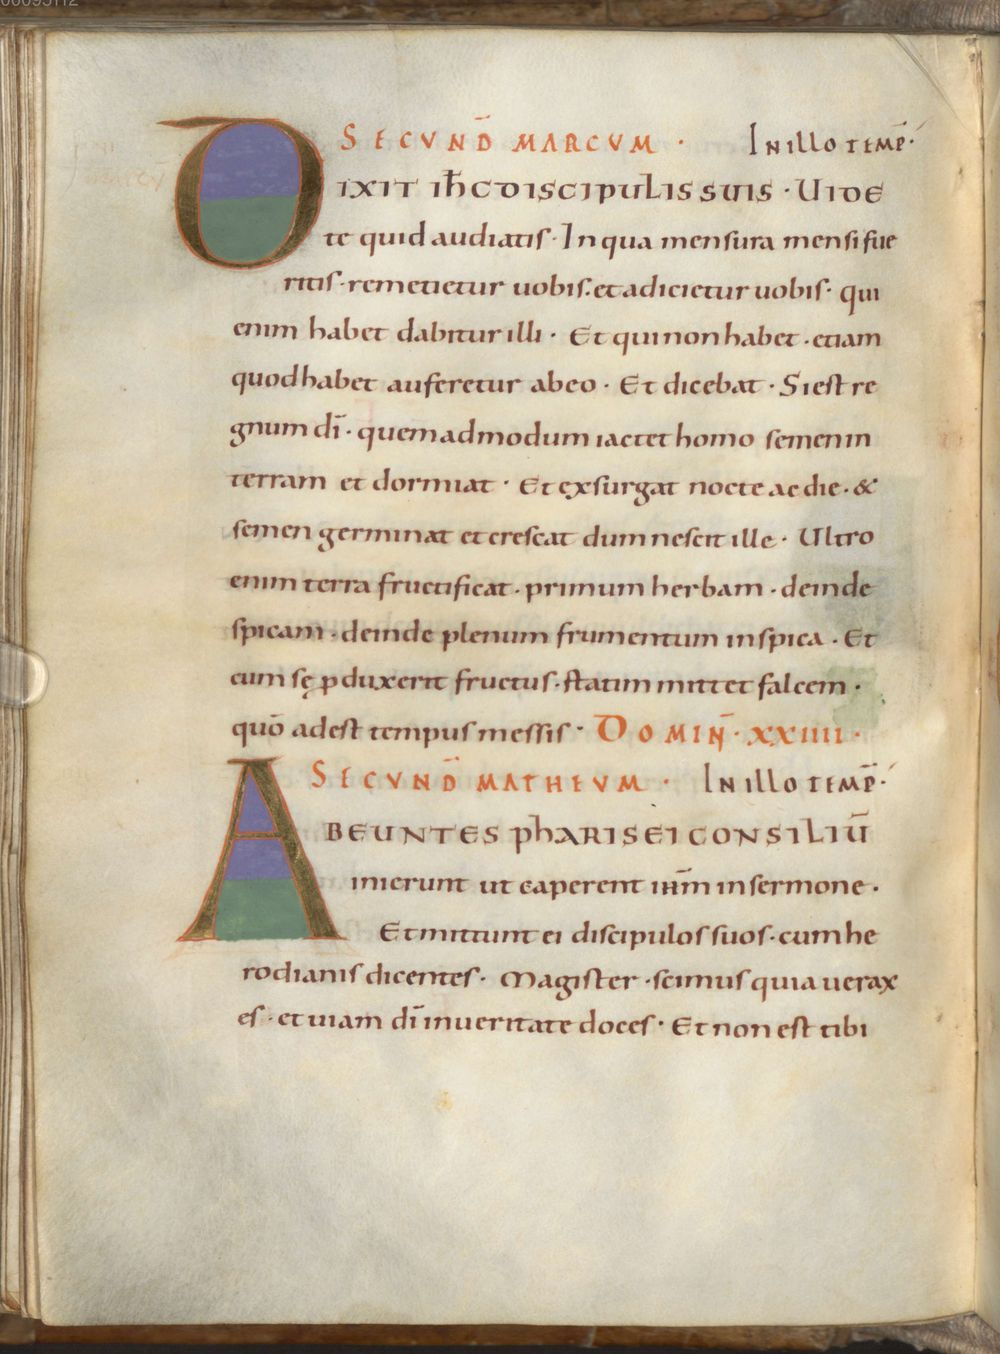 SECVND̄ MARCVM · IN ILLO TEMP̄·
DIXIT IH̄C DISCIPULIS SUIS · UIDE
te quid audiatis · In qua mensura mensi fue
ritis · remetietur uobis · et adicietur uobis · qui
enim habet dabitur illi · Et qui non habet · etiam
quod habet auferetur ab eo · Et dicebat · Si est re
gnum dī · quemadmodum iactet homo semen in
terram et dormiat · Et exsurgat nocte ac die · &
semen germinat et crescat dum nescit ille · Ultro
enim terra fructificat · primum herbam · deinde
spicam · deinde plenum frumentum in spica · Et
cum sę ꝓduxerit fructus · statim mittet falcem ·
quō adest tempus messis · DOMIN̄ · XXIIII ·
SECVND̄ MATHEVM · IN ILLO TEMP̄·
ABEUNTES PHARISEI CONSILIŪ
inierunt ut caperent ihm̄ in sermone ·
Et mittunt ei discipulos suos · cum he
rodianis dicentes · Magister · scimus quia uerax
es · et uiam dī in ueritate doces · Et non est tibi